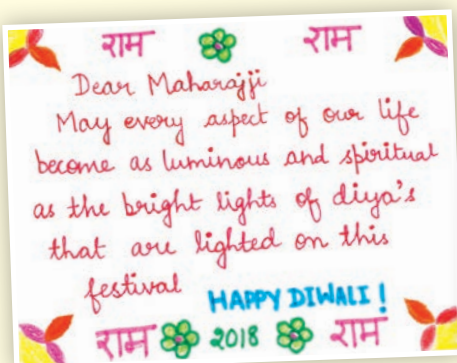 राम राम
Dear Maharajji
May every aspect of our life
become as luminous and spiritual
as the bright lights of diya's
that are lighted on this
festival HAPPY DIWALI !
राम 2018 राम